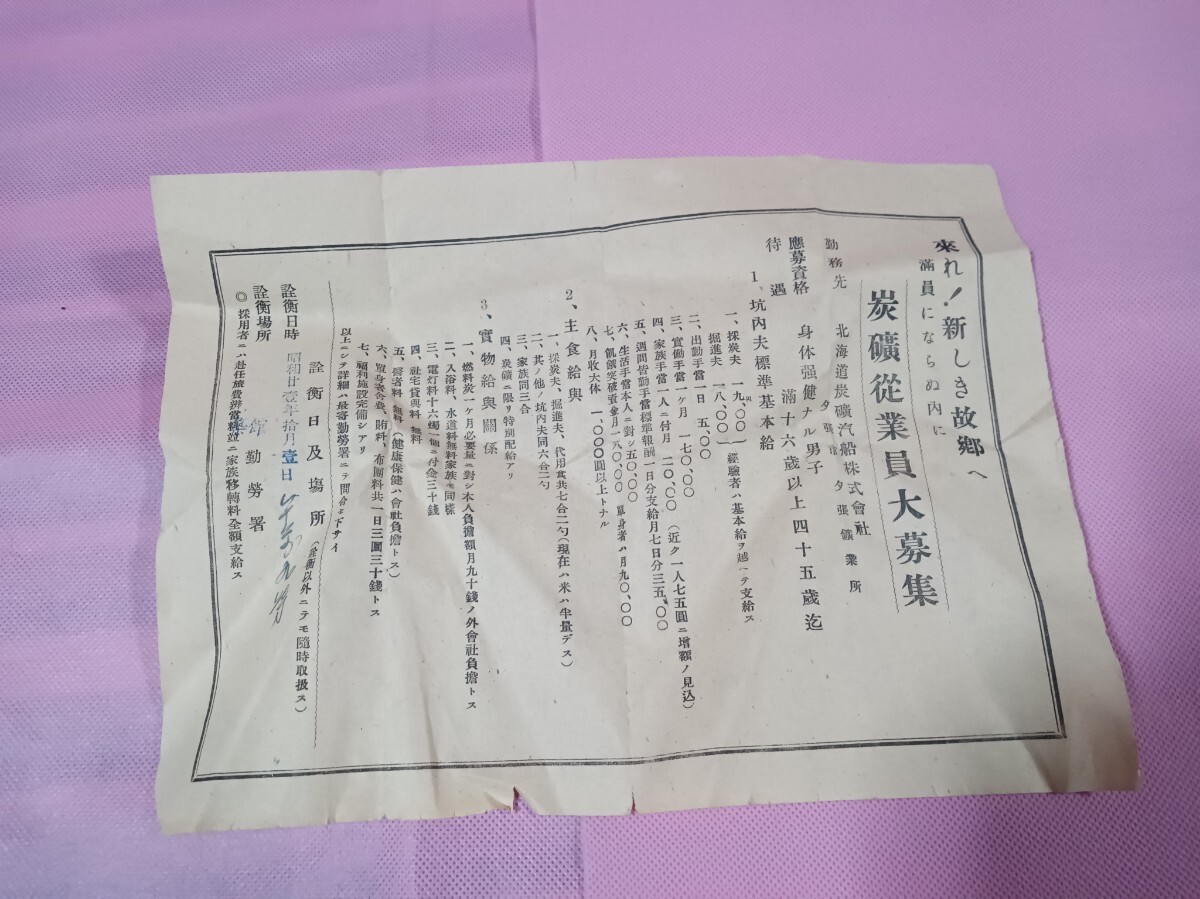 來れ！新しき故鄕へ
滿員にならぬ內に
炭礦從業員大募集
勤務先 北海道炭礦汽船株式會社
夕張鑛業所
應募資格 身体强健ナル男子 滿十六歲以上四十五歲迄
待遇
1、坑內夫標準基本給
一、採炭夫 一九、〇〇
掘進夫 一八、〇〇
經驗者ハ基本給ヲ越ヘテ支給ス
二、出勤手當一日 五、〇〇
三、實働手當一ヶ月 一七〇、〇〇
四、家族手當一人ニ付月 二〇、〇〇 (近ク一人七五圓ニ增額ノ見込)
五、週間皆勤手當標準報酬一日分支給月七日分三五、〇〇
六、生活手當本人ニ對シ五〇、〇〇
七、飢餓突破資金月一八〇、〇〇 單身者ハ月九〇、〇〇
八、月收大体 一、〇〇〇圓以上トナル
2、主食給與
一、採炭夫、掘進夫、代用食共七合二勺(現在ハ米ハ半量デス)
二、其ノ他ノ坑內夫同六合二勺
三、家族同三合
四、炭礦ニ限リ特別配給アリ
3、實物給與關係
一、燃料炭一ヶ月必要量ニ對シ本人負擔額月九十錢ノ外會社負擔トス
二、入浴料、水道料無料家族モ同樣
三、電灯料十六燭一個ニ付金三十錢
四、社宅貸與料 無料
五、醫者料 無料 (健康保健ハ會社負擔トス)
六、單身寄合費、賄料、布團料共一日三圓三十錢トス
七、福利施設完備シアリ
以上ニシテ詳細ハ最寄勤勞署ニテ問合セ下サイ
詮衡日及場所 (詮衡以外ニテモ隨時取扱ス)
詮衡日時 昭和廿壹年拾月壹日
詮衡場所 勤勞署
◎採用者ニハ赴任旅費辨當料並ニ家族移轉料全額支給ス